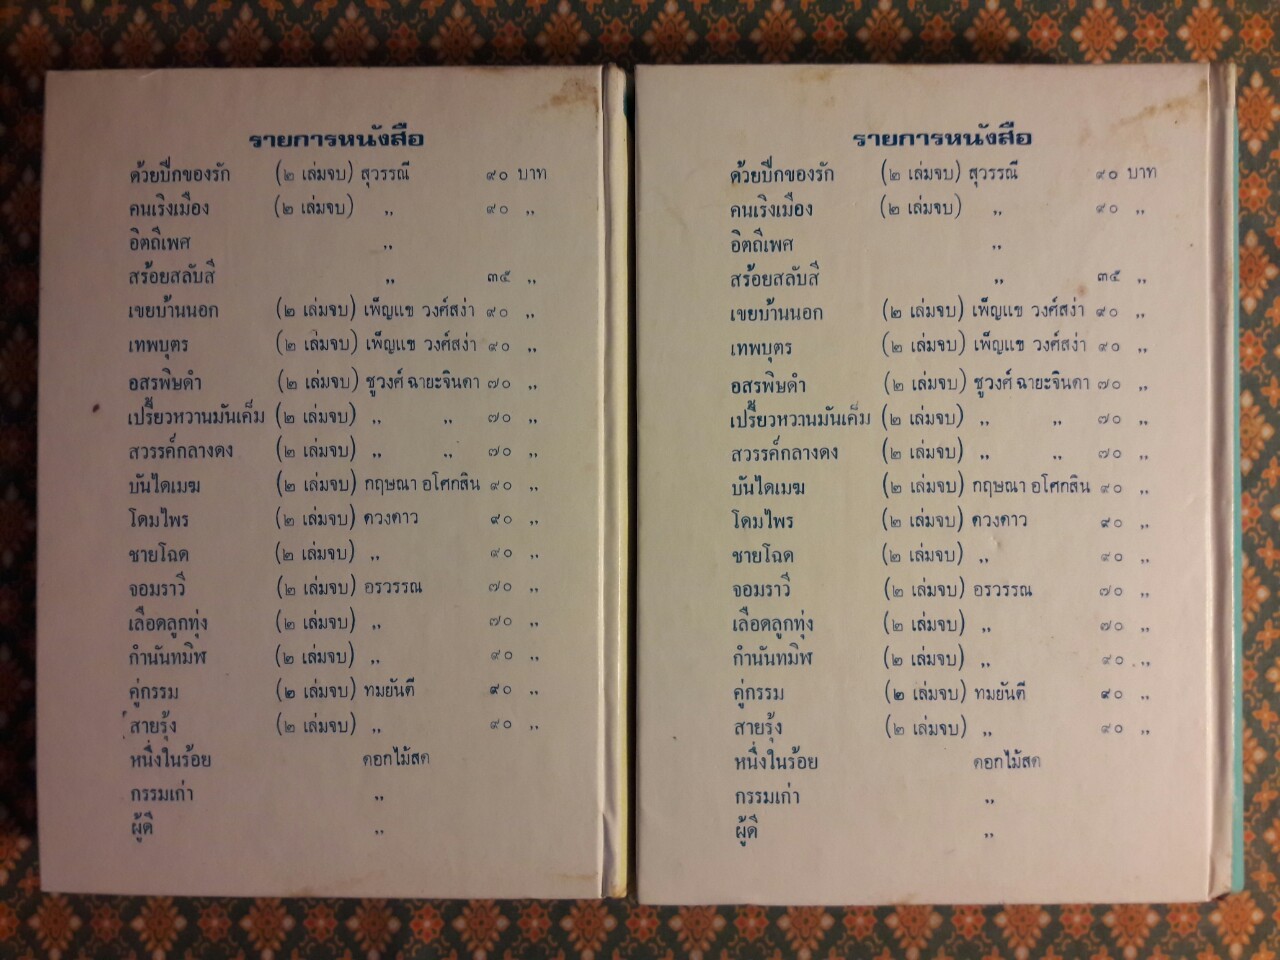 รายการหนังสือ
ด้วยปีกของรัก (๒ เล่มจบ) สุวรรณี ๙๐ บาท
คนเริงเมือง (๒ เล่มจบ) ,, ๙๐ ,,
อิตถีเพศ ,,
สร้อยสลับสี ,, ๓๕ ,,
เขยบ้านนอก (๒ เล่มจบ) เพ็ญแข วงศ์สง่า ๙๐ ,,
เทพบุตร (๒ เล่มจบ) เพ็ญแข วงศ์สง่า ๙๐ ,,
อสรพิษดำ (๒ เล่มจบ) ชูวงศ์ ฉายะจินดา ๗๐ ,,
เปรี้ยวหวานมันเค็ม (๒ เล่มจบ) ,, ,, ๗๐ ,,
สวรรค์กลางดง (๒ เล่มจบ) ,, ,, ๗๐ ,,
บันไดเมฆ (๒ เล่มจบ) กฤษณา อโศกสิน ๙๐ ,,
โดมไพร (๒ เล่มจบ) ดวงดาว ๙๐ ,,
ชายโฉด (๒ เล่มจบ) ,, ๙๐ ,,
จอมราวี (๒ เล่มจบ) อรวรรณ ๗๐ ,,
เลือดลูกทุ่ง (๒ เล่มจบ) ,, ๗๐ ,,
กำนันทมิฬ (๒ เล่มจบ) ,, ๙๐ ,,
คู่กรรม (๒ เล่มจบ) ทมยันตี ๙๐ ,,
สายรุ้ง (๒ เล่มจบ) ,, ๙๐ ,,
หนึ่งในร้อย ดอกไม้สด
กรรมเก่า ,,
ผู้ดี ,,
รายการหนังสือ
ด้วยปีกของรัก (๒ เล่มจบ) สุวรรณี ๙๐ บาท
คนเริงเมือง (๒ เล่มจบ) ,, ๙๐ ,,
อิตถีเพศ ,,
สร้อยสลับสี ,, ๓๕ ,,
เขยบ้านนอก (๒ เล่มจบ) เพ็ญแข วงศ์สง่า ๙๐ ,,
เทพบุตร (๒ เล่มจบ) เพ็ญแข วงศ์สง่า ๙๐ ,,
อสรพิษดำ (๒ เล่มจบ) ชูวงศ์ ฉายะจินดา ๗๐ ,,
เปรี้ยวหวานมันเค็ม (๒ เล่มจบ) ,, ,, ๗๐ ,,
สวรรค์กลางดง (๒ เล่มจบ) ,, ,, ๗๐ ,,
บันไดเมฆ (๒ เล่มจบ) กฤษณา อโศกสิน ๙๐ ,,
โดมไพร (๒ เล่มจบ) ดวงดาว ๙๐ ,,
ชายโฉด (๒ เล่มจบ) ,, ๙๐ ,,
จอมราวี (๒ เล่มจบ) อรวรรณ ๗๐ ,,
เลือดลูกทุ่ง (๒ เล่มจบ) ,, ๗๐ ,,
กำนันทมิฬ (๒ เล่มจบ) ,, ๙๐ ,,
คู่กรรม (๒ เล่มจบ) ทมยันตี ๙๐ ,,
สายรุ้ง (๒ เล่มจบ) ,, ๙๐ ,,
หนึ่งในร้อย ดอกไม้สด
กรรมเก่า ,,
ผู้ดี ,,